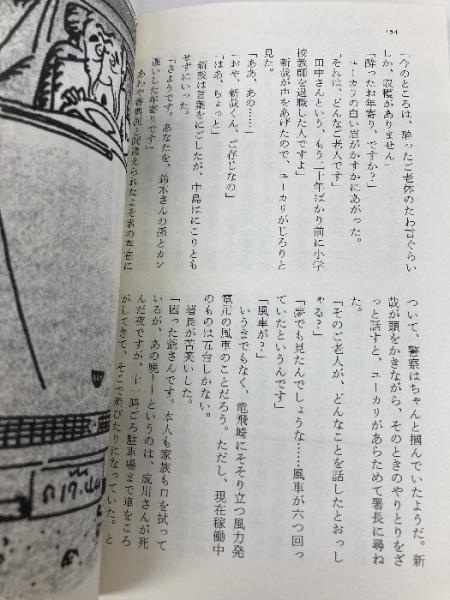 194
「今のところは、酔ったご老体のたわ言ぐらい
しか、収穫がありません」
「酔ったお年寄り、ですか？」
ユーカリの白い眉がかすかにあがった。
「それは、どんなご老人です」
「田中さんという、もう二十年ばかり前に小学
校教師を退職した人ですよ」
新哉が声をあげたので、ユーカリがじろりと
見た。
「ああ、あの……」
「おや、新哉くん、ご存じなの」
「はあ、ちょっと」
新哉は言葉をにごしたが、中島はにこりとも
せずにいった。
「さようです。あなたを、鈴木さんの孫とカン
違いした年寄りです」
あわや香典泥と間違えられたよそ者の存在に
ついて、警察はちゃんと掴んでいたようだ。新
哉が頭をかきながら、そのときのやりとりをざ
っと話すと、ユーカリがあらためて署長に尋ね
た。
「そのご老人が、どんなことを話したとおっし
ゃる？」
「夢でも見たんでしょうな……風車が六つ回っ
ていたというんです」
「風車が？」
いうまでもなく、竜飛崎にそそり立つ風力発
電用の風車のことだろう。ただし、現在稼働中
のものは五台しかない。
署長が苦笑いした。
「困った爺さんです。本人も家族も口を拭って
いるが、あの晩――というのは、成川さんが死
んだ夜ですが、十一時ごろ駐車場まで車をころ
がしてきて、そこで酔びたりになっていた。と